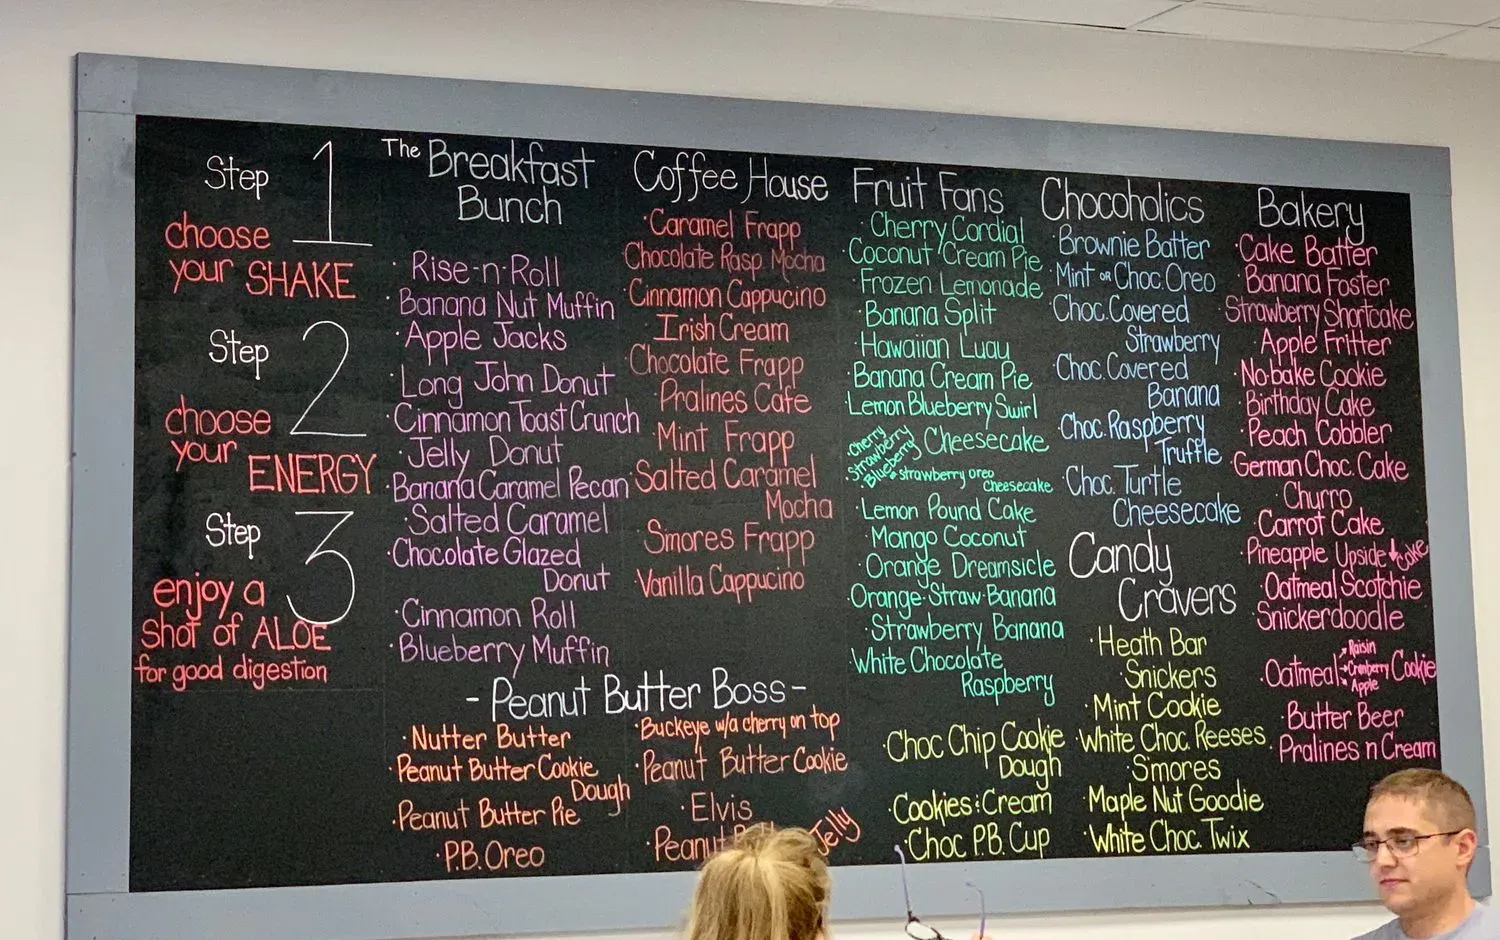 Step 1
choose
your SHAKE
Step 2
choose
your
ENERGY
Step 3
enjoy a
shot of ALOE
for good digestion
The Breakfast
Bunch
· Rise-n-Roll
· Banana Nut Muffin
· Apple Jacks
· Long John Donut
· Cinnamon Toast Crunch
· Jelly Donut
· Banana Caramel Pecan
· Salted Caramel
· Chocolate Glazed
Donut
· Cinnamon Roll
· Blueberry Muffin
Coffee House
· Caramel Frapp
· Chocolate Rasp Mocha
· Cinnamon Cappucino
· Irish Cream
· Chocolate Frapp
· Pralines Cafe
· Mint Frapp
· Salted Caramel
Mocha
· Smores Frapp
· Vanilla Cappucino
- Peanut Butter Boss -
· Nutter Butter
· Peanut Butter Cookie
Dough
· Peanut Butter Pie
· P.B. Oreo
· Buckeye w/a cherry on top
· Peanut Butter Cookie
· Elvis
· Peanut
Jelly
Fruit Fans
· Cherry Cordial
· Coconut Cream Pie
· Frozen Lemonade
· Banana Split
· Hawaiian Luau
· Banana Cream Pie
· Lemon Blueberry Swirl
· Cherry
Strawberry
Blueberry
Cheesecake
· strawberry oreo
cheesecake
· Lemon Pound Cake
· Mango Coconut
· Orange Dreamsicle
· Orange-Straw-Banana
· Strawberry Banana
· White Chocolate
Raspberry
Chocoholics
· Brownie Batter
· Mint or Choc. Oreo
· Choc. Covered
Strawberry
· Choc. Covered
Banana
· Choc. Raspberry
Truffle
· Choc. Turtle
Cheesecake
Candy
Cravers
· Choc Chip Cookie
Dough
· Cookies & Cream
· Choc P.B. Cup
· Heath Bar
· Snickers
· Mint Cookie
· White Choc. Reeses
· S'mores
· Maple Nut Goodie
· White Choc. Twix
Bakery
· Cake Batter
· Banana Foster
· Strawberry Shortcake
· Apple Fritter
· No-bake Cookie
· Birthday Cake
· Peach Cobbler
· German Choc. Cake
· Churro
· Carrot Cake
· Pineapple Upside ↓ Cake
· Oatmeal Scotchie
· Snickerdoodle
· Oatmeal Raisin Cranberry Apple Cookie
· Butter Beer
· Pralines n Cream